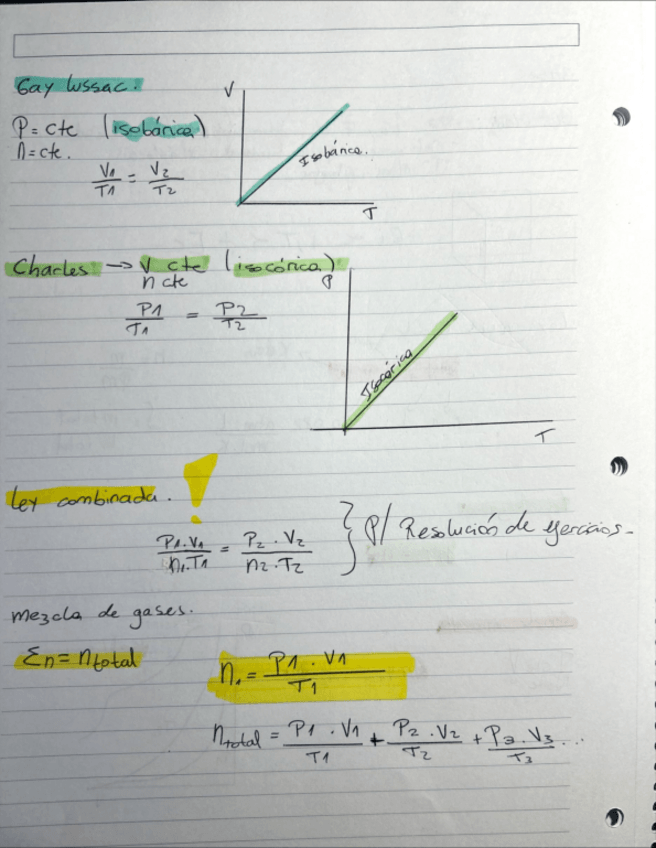 Gay lussac:
V
P = cte (isobárica)
n = cte.
Isobárica.
V1/T1 = V2/T2
T
Charles → V cte (isocórica)
n cte
P
P1/T1 = P2/T2
Isocórica
T
Ley combinada. !
P1.V1/n1.T1 = P2.V2/n2.T2 } P/ Resolución de ejercicios-
mezcla de gases.
Σn = ntotal
n1 = P1.V1/T1
ntotal = P1.V1/T1 + P2.V2/T2 + P3.V3/T3 ...